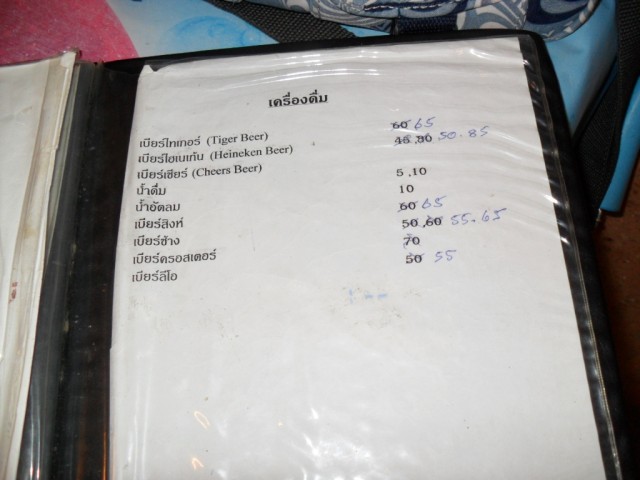 เครื่องดื่ม
เบียร์ไทเกอร์ (Tiger Beer) 60 65
เบียร์ไฮเนเก้น (Heineken Beer) 45,80 50-85
เบียร์เชียร์ (Cheers Beer)
น้ำดื่ม 5,10
น้ำอัดลม 10
เบียร์สิงห์ 60 65
เบียร์ช้าง 50,60 55-65
เบียร์ครอสเตอร์ 70
เบียร์ลีโอ 50 55